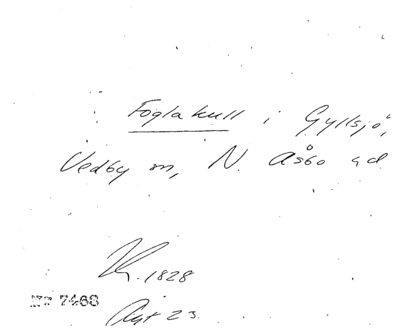 Foglakull i Gyllsjö,
Vedby sn, N. Åsbo hd
K. 1828
Nr 7468
Akt 23.